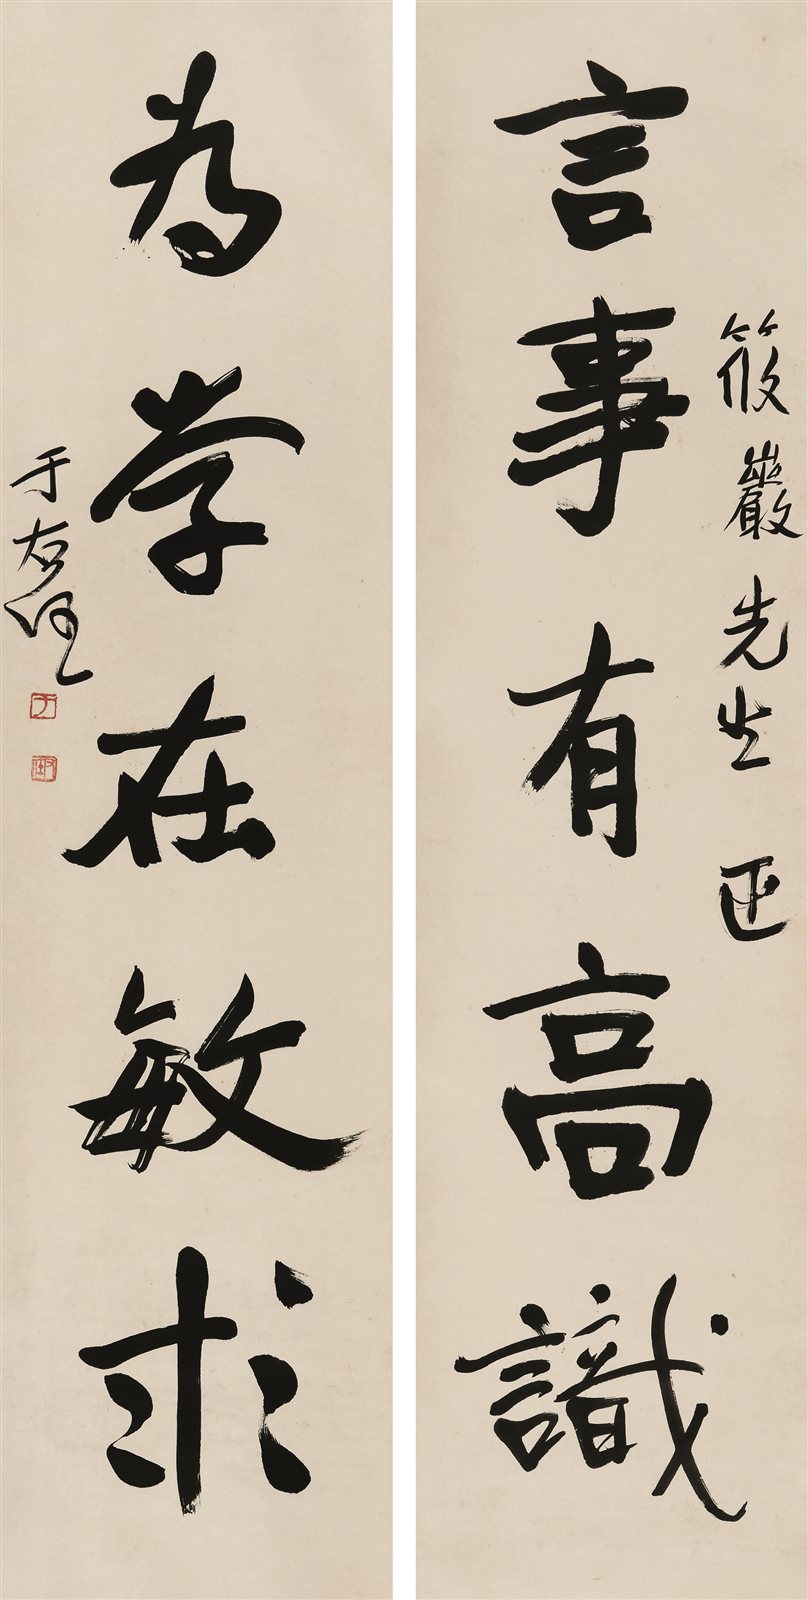 筱巖先生正
言事有高識
為學在敏求
于右任